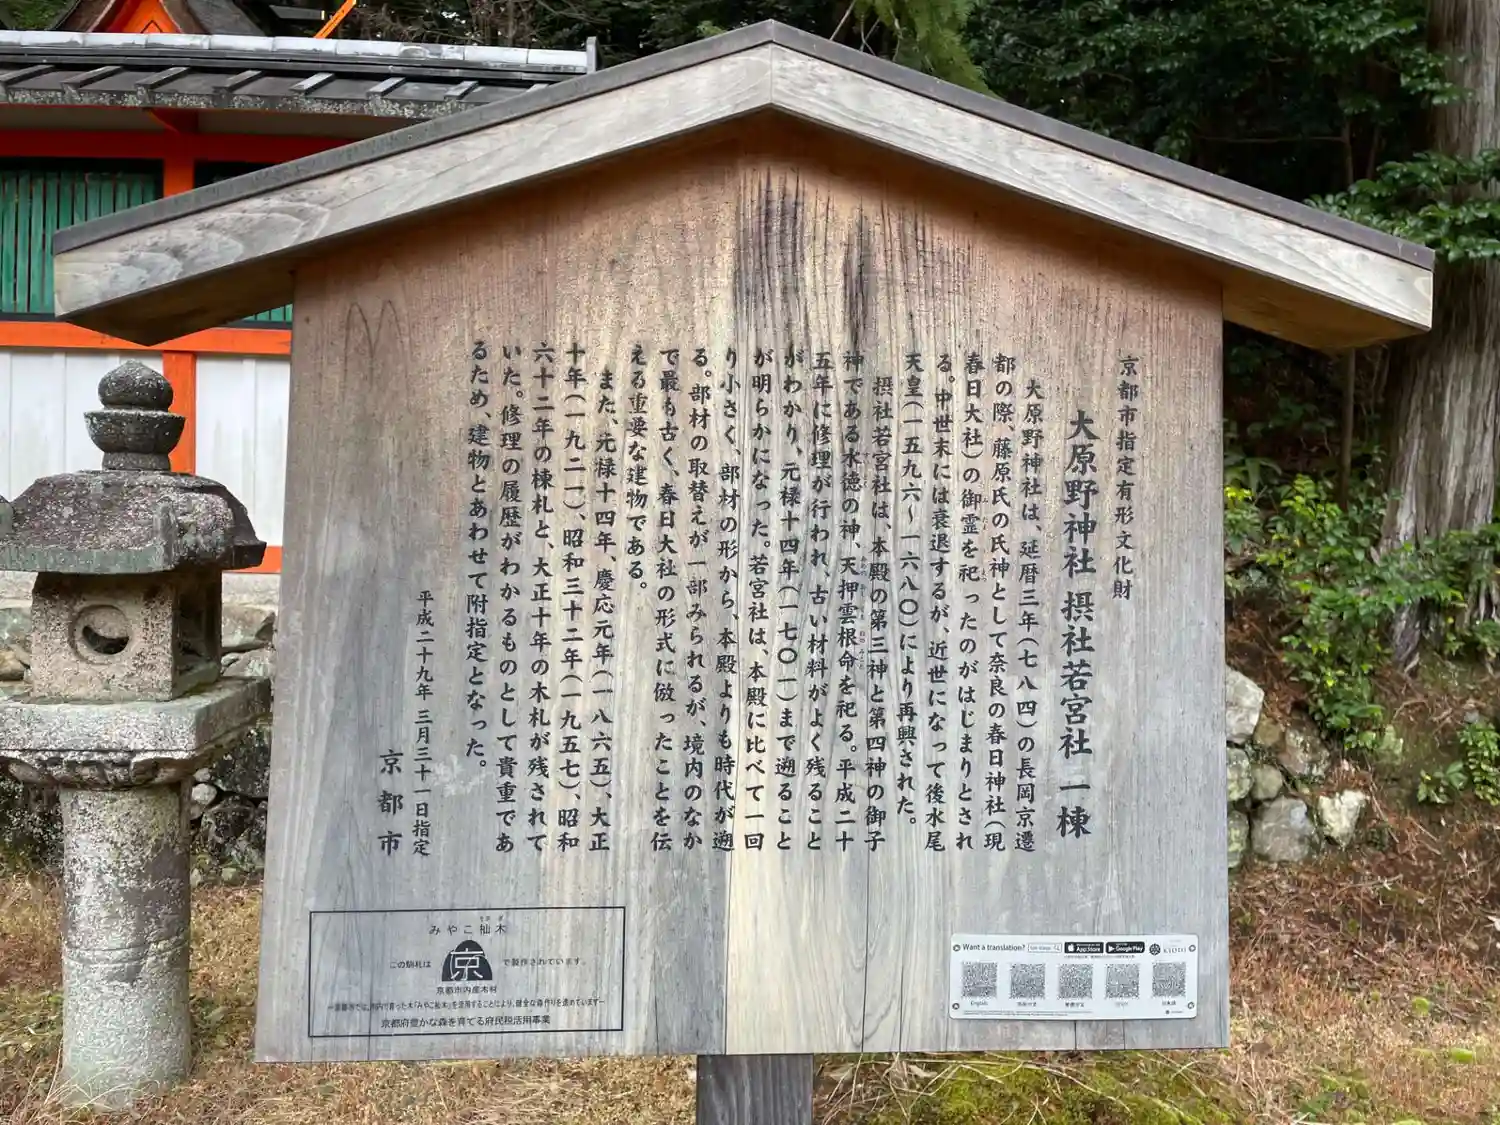 京都市指定有形文化財
大原野神社 摂社若宮社 一棟
大原野神社は、延暦三年(七八四)の長岡京遷
都の際、藤原氏の氏神として奈良の春日神社(現
春日大社)の御霊を祀ったのがはじまりとされ
る。中世末には衰退するが、近世になって後水尾
天皇(一五九六〜一六八〇)により再興された。
摂社若宮社は、本殿の第三神と第四神の御子
神である水徳の神、天押雲根命を祀る。平成二十
五年に修理が行われ、古い材料がよく残ること
がわかり、元禄十四年(一七〇一)まで遡ること
が明らかになった。若宮社は、本殿に比べて一回
り小さく、部材の形から、本殿よりも時代が遡
る。部材の取替えが一部みられるが、境内のなか
で最も古く、春日大社の形式に倣ったことを伝
える重要な建物である。
また、元禄十四年、慶応元年(一八六五)、大正
十年(一九二一)、昭和三十二年(一九五七)、昭和
六十二年の棟札と、大正十年の木札が残されて
いた。修理の履歴がわかるものとして貴重であ
るため、建物とあわせて附指定となった。
平成二十九年 三月三十一日指定
京都市
みやこ杣木
この駒札は
京
で製作されています。
京都市内産木材
ー京都市では、市内で育った木「みやこ杣木」を活用することにより、健全な森作りを進めていますー
京都府豊かな森を育てる府民税活用事業
Want a translation?
App Store
Google Play
English